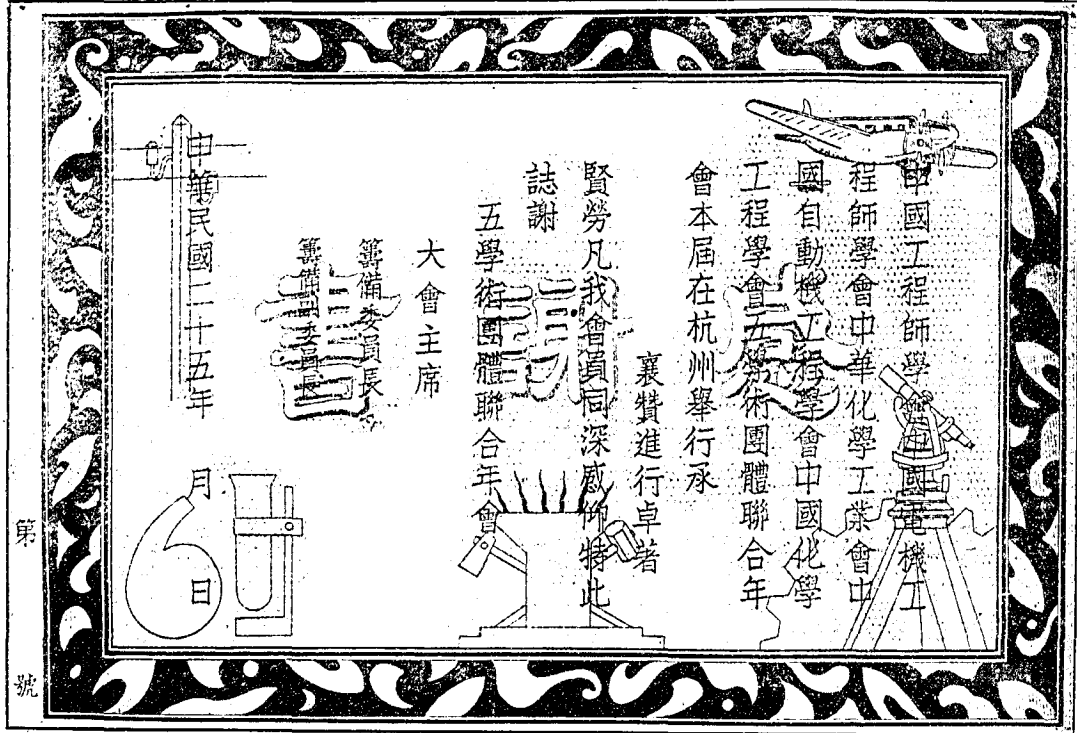 中國工程師學會中國電機工
程師學會中華化學工業會中
國自動機工程學會中國化學
工程學會五學術團體聯合年
會本屆在杭州舉行承
襄贊進行卓著
賢勞凡我會員同深感仰特此
誌謝
五學術團體聯合年會
大會主席
籌備委員長
籌備副委員長
中華民國二十五年 月 日
感謝書
第 號